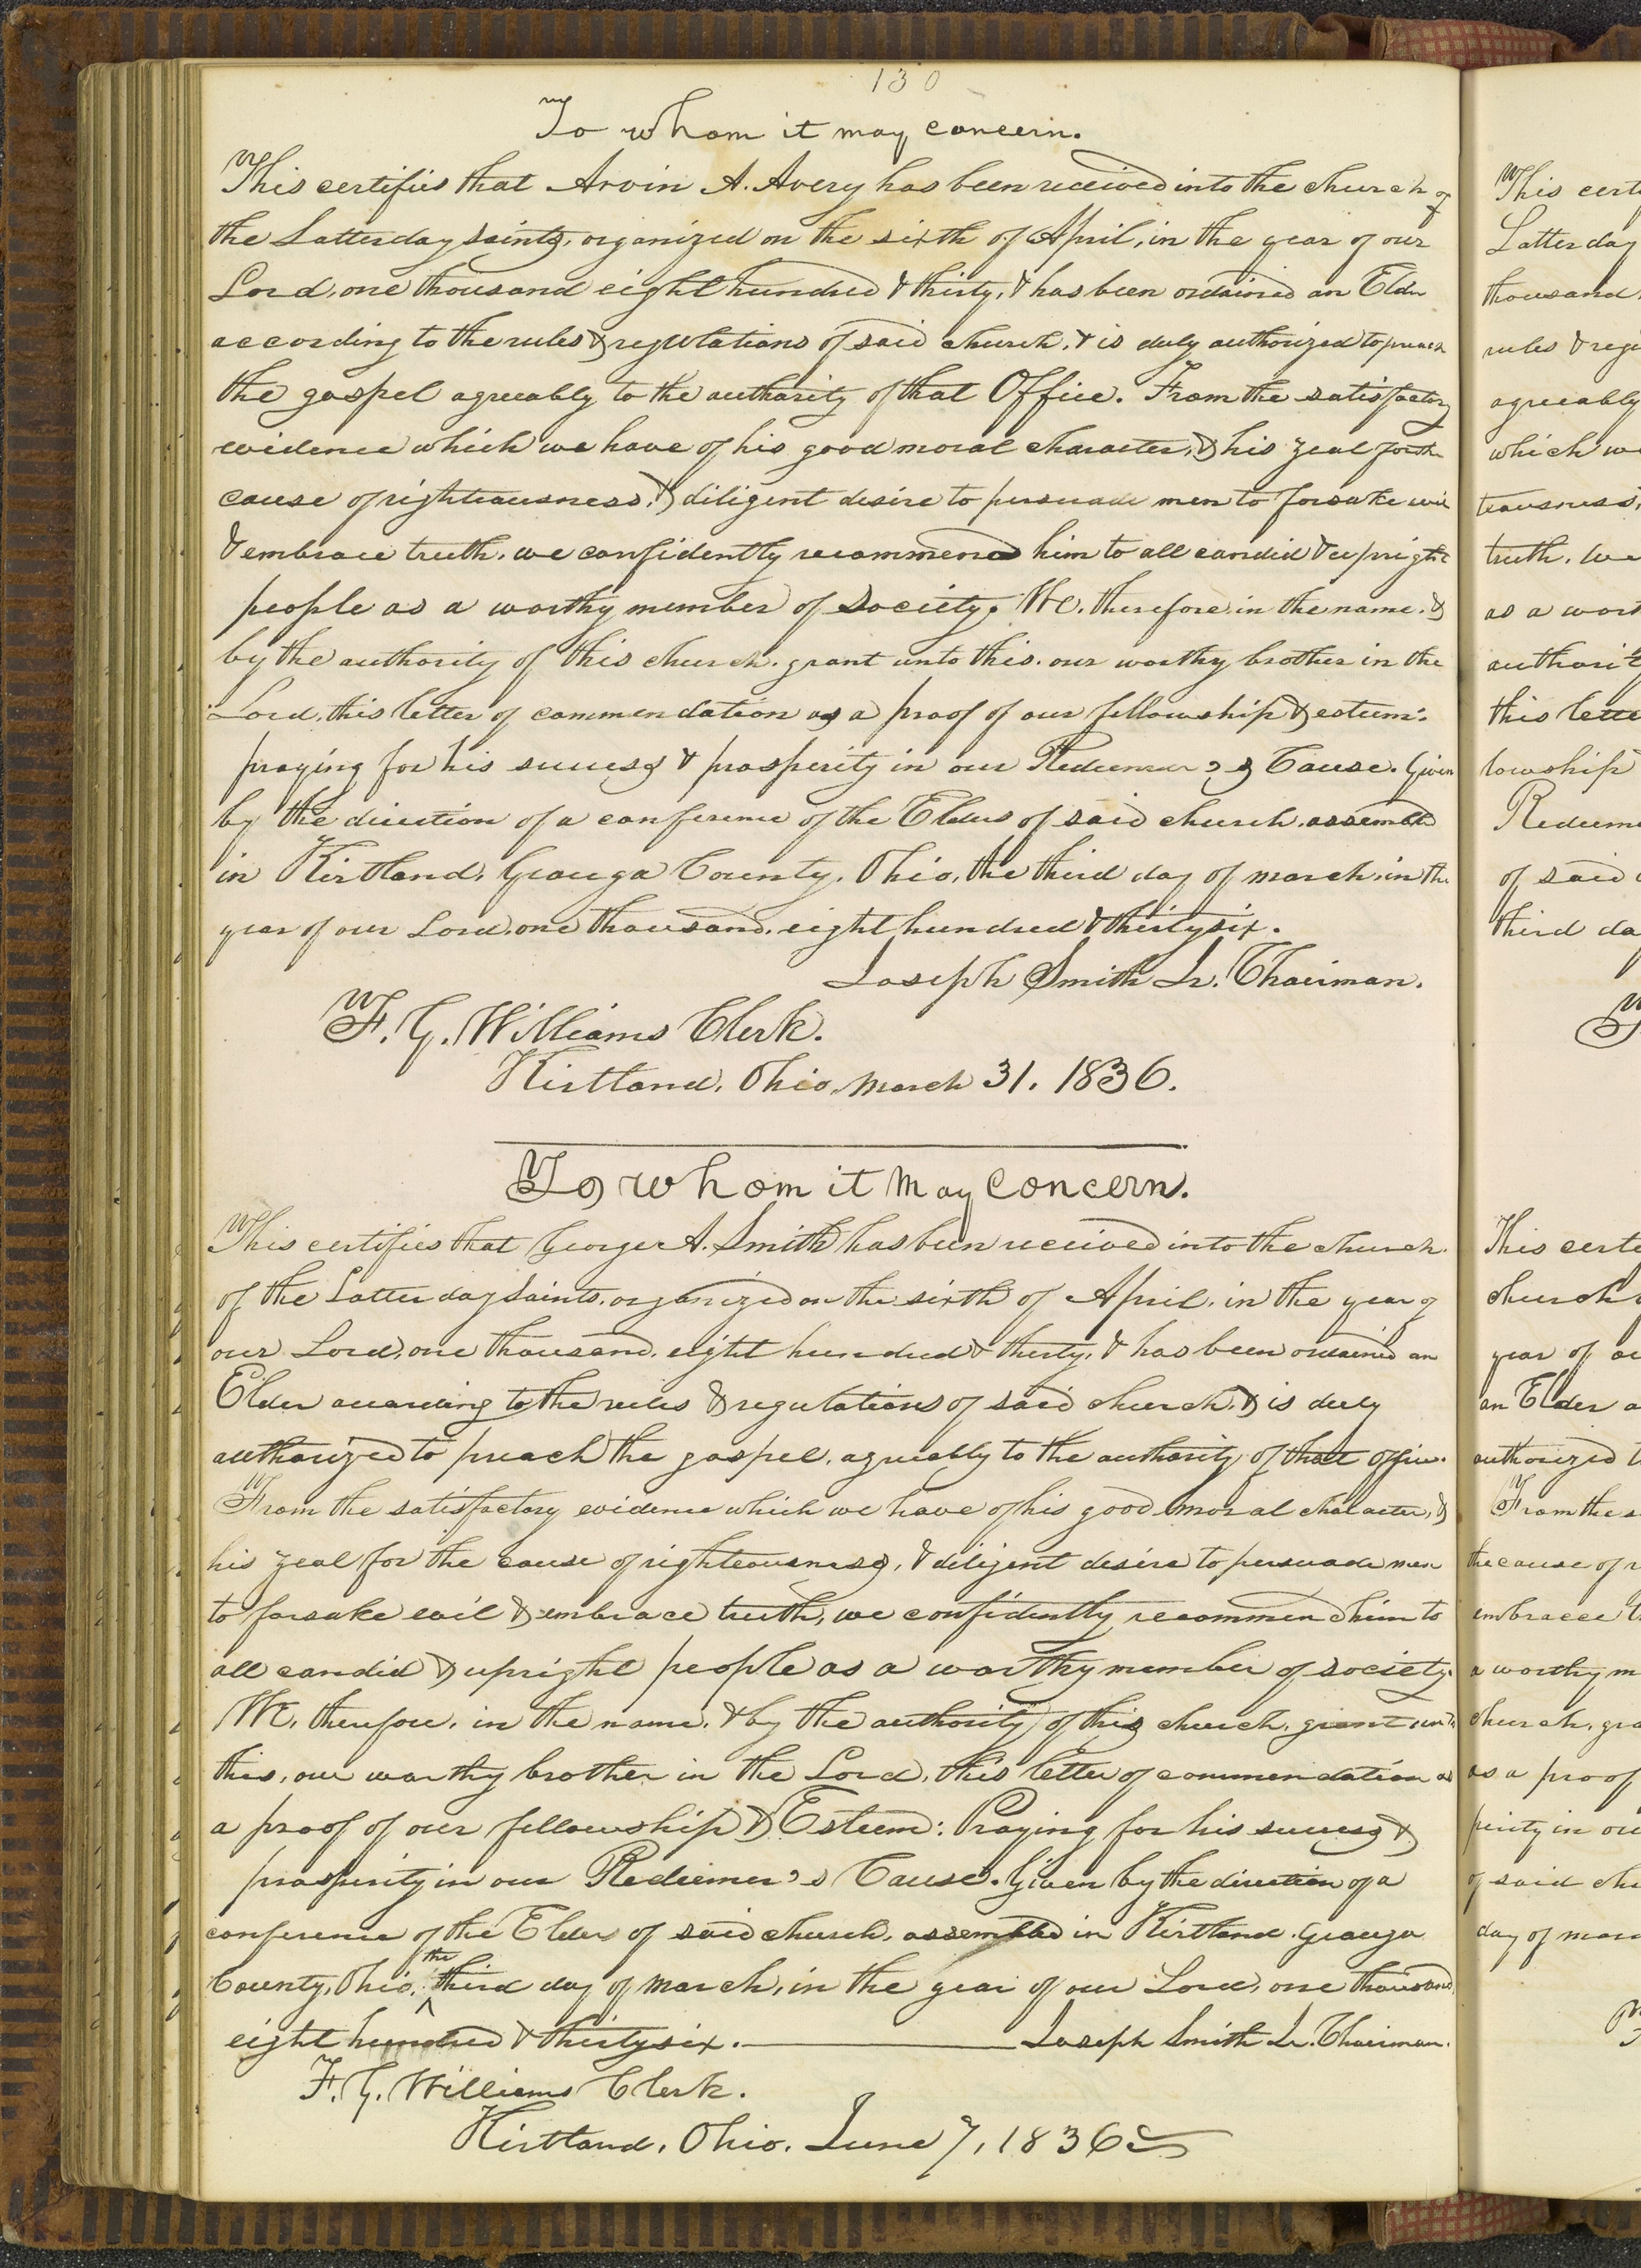 130
To whom it may concern.
This certifies that Arvin A. Avery has been received into the church of
the Latter day saints, organized on the sixth of April, in the year of our
Lord, one thousand eight hundred & thirty, & has been ordained an Elder
according to the rules & regulations of said church, & is duly authorized to preach
the gospel agreeably to the authority of that Office. From the satisfactory
evidence which we have of his good moral character, & his zeal for the
cause of righteousness, & diligent desire to persuade men to forsake evil
& embrace truth, we confidently recommend him to all candid & upright
people as a worthy member of Society. We, therefore, in the name, &
by the authority of this church, grant unto this, our worthy brother in the
Lord, this letter of commendation as a proof of our fellowship & esteem:
praying for his success & prosperity in our Redeemer's Cause. Given
by the direction of a conference of the Elders of said church, assembled
in Kirtland, Geauga County, Ohio, the third day of march, in the
year of our Lord, one thousand, eight hundred & thirty six.
Joseph Smith Jr. Chairman.
F. G. Williams Clerk.
Kirtland, Ohio, March 31. 1836.
To whom it May Concern.
This certifies that George A. Smith has been received into the church
of the Latter day Saints, organized on the sixth of April, in the year of
our Lord, one thousand, eight hundred & thirty, & has been ordained an
Elder according to the rules & regulations of said church, & is duly
authorized to preach the gospel, agreeably to the authority of that office.
From the satisfactory evidence which we have of his good moral character, &
his zeal for the cause of righteousness, & diligent desire to persuade men
to forsake evil & embrace truth, we confidently recommend him to
all candid & upright people as a worthy member of society.
We, therefore, in the name, & by the authority of this church, grant unto
this, our worthy brother in the Lord, this letter of commendation as
a proof of our fellowship & Esteem: Praying for his success &
prosperity in our Redeemer's Cause. Given by the direction of a
conference of the Elders of said church, assembled in Kirtland Geauga
County, Ohio, the third day of march, in the year of our Lord, one thousand
eight hundred & thirty six. Joseph Smith Jr. Chairman.
F. G. Williams Clerk.
Kirtland, Ohio. June 7, 1836
This certi
Latter day
thousand
rules & regu
agreeably
which we
teousness,
truth, we
as a wort
authorit
this lette
lowship
Redeeme
of said
third da
This certi
church
year of ou
an Elder a
authorized t
From the s
the cause of r
embrace t
a worthy m
church, gra
as a proof
perity in ou
of said chu
day of marc